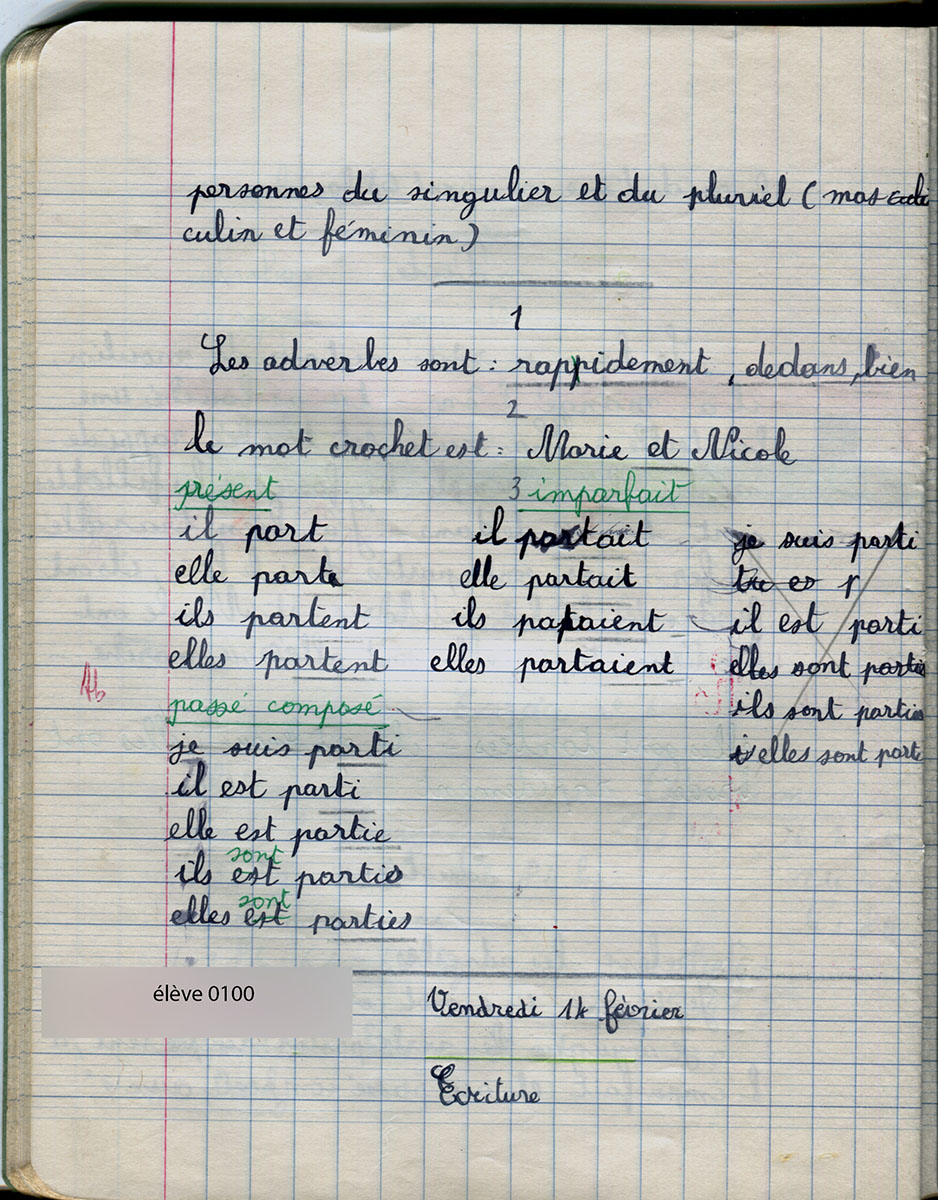 personnes du singulier et du pluriel ( mas
culin et féminin )
1
Les adverbes sont : rappidement , dedans, bien
2
le mot crochet est : Marie et Nicole
présent 3 imparfait
il part il partait je suis parti
elle parte elle partait tu es p
ils partent ils partaient il est parti
elles partent elles partaient elles sont parties
passé composé ils sont parties
je suis parti elles sont part
il est parti
elle est partie
sont
ils est partis
sont
elles est parties
élève 0100
Vendredi 14 février
Ecriture